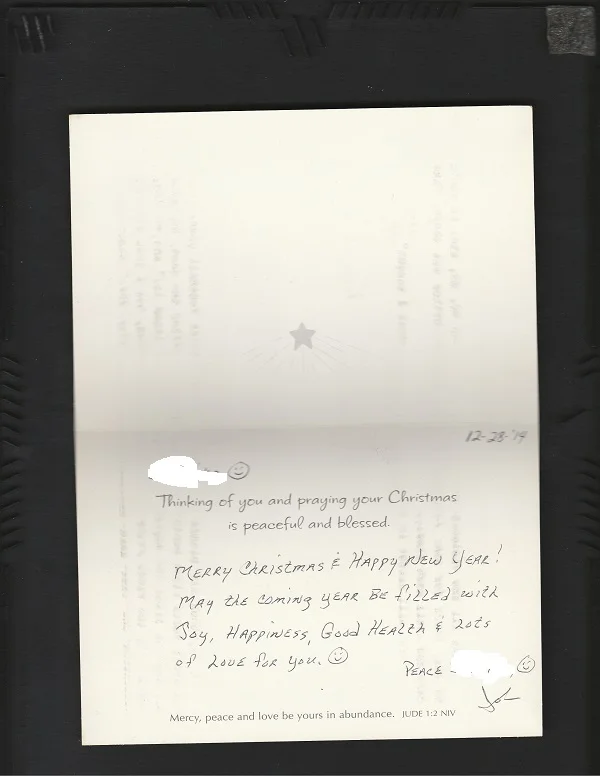 12-28-'19
Thinking of you and praying your Christmas
is peaceful and blessed.
MERRY CHRISTMAS & HAPPY NEW YEAR!
MAY THE COMING YEAR BE FILLED WITH
JOY, HAPPINESS, GOOD HEALTH & LOTS
OF LOVE FOR YOU. ☺
PEACE -
Mercy, peace and love be yours in abundance. JUDE 1:2 NIV